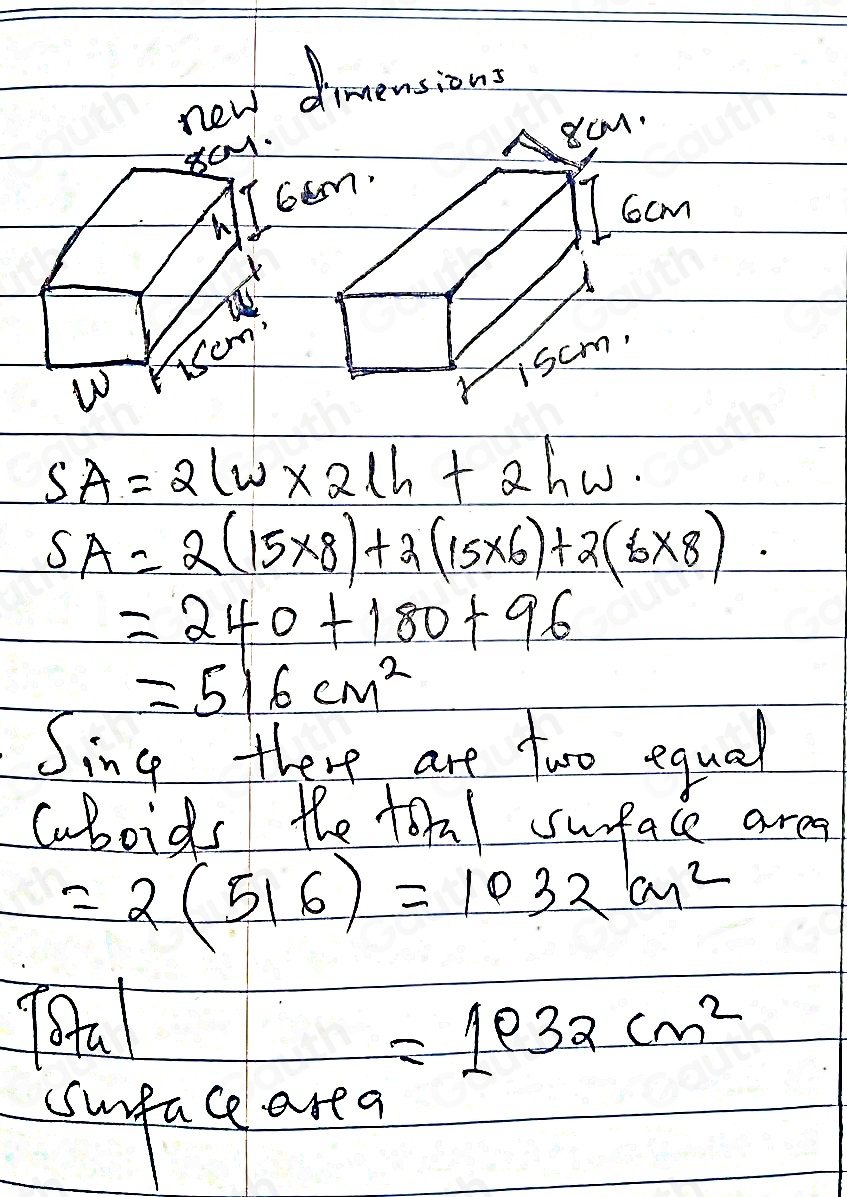 new dimensions
8cm.
8cm.
6cm.
h
6cm
w
15cm.
W
15cm.
SA = 2lw x 2lh + 2hw.
SA = 2(15x8)+2(15x6)+2(6x8).
= 240 + 180 + 96
= 516 cm²
Since there are two equal
Cuboids the total surface area
= 2(516) = 1032 cm²
Total
= 1032 cm²
surface area